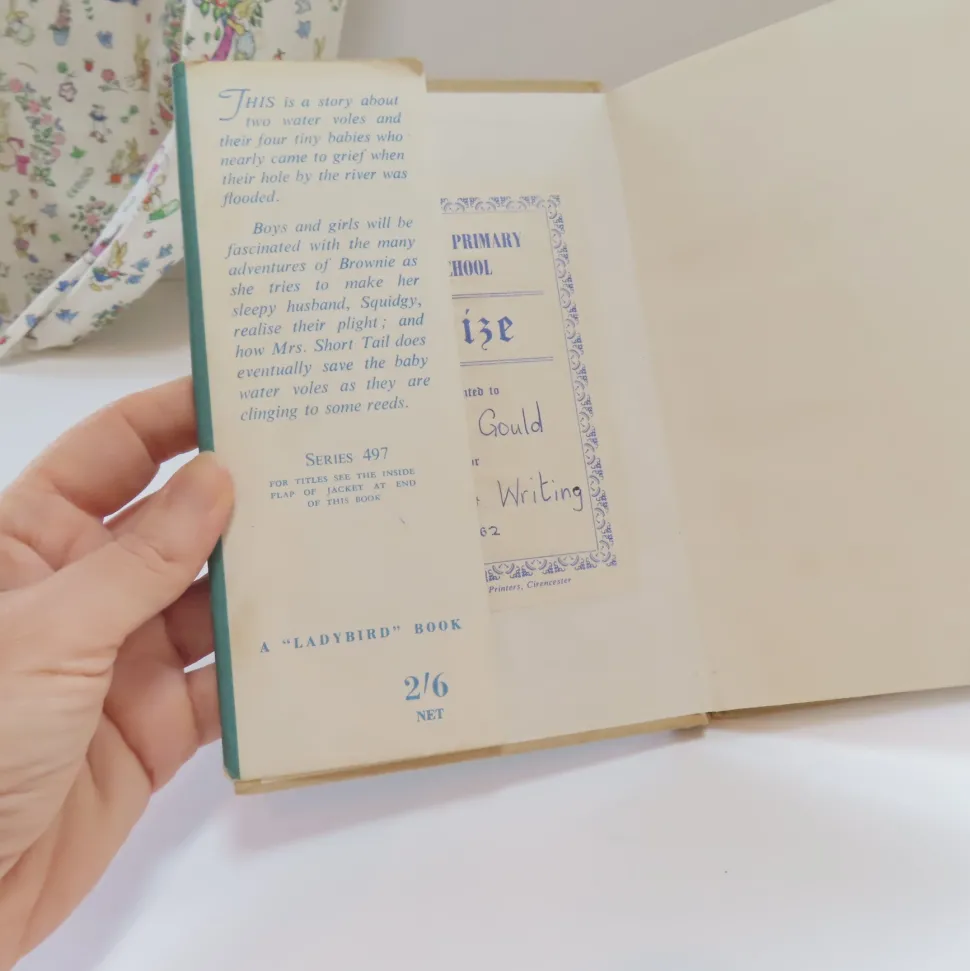 THIS is a story about
two water voles and
their four tiny babies who
nearly came to grief when
their hole by the river was
flooded.
Boys and girls will be
fascinated with the many
adventures of Brownie as
she tries to make her
sleepy husband, Squidgy,
realise their plight; and
how Mrs. Short Tail does
eventually save the baby
water voles as they are
clinging to some reeds.
SERIES 497
FOR TITLES SEE THE INSIDE
FLAP OF JACKET AT END
OF THIS BOOK
A "LADYBIRD" BOOK
2/6
NET
PRIMARY
HOOL
ize
nted to
Gould
or
Writing
62
Printers, Cirencester